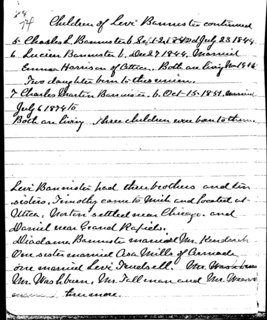 74
Children of Levi Bannister continued
5. Charles L Bannister b. Sept 2. 1842 d July 23. 1844.
6 Lucien Bannister b. Dec 27 1844. Married
Emma Harrison of Attica. Both are living
Two daughters born to this union.
7 Charles Martin Bannister. b. Oct-15-1851. married
July 6 1874 to
Both are living three children were born to them.
Levi Bannister had three brothers and ten
sisters. Timothy came to Mich and located at
Attica, Norton settled near Chicago. and
Daniel near Grand Rapids.
Diadama Bannister married Mr. Kendrick
One sister married Asa Mills of Armada
one married Levi Truesdell. Mr. Washburn
Mr. Washburn, Mr. Tallman and Mr.